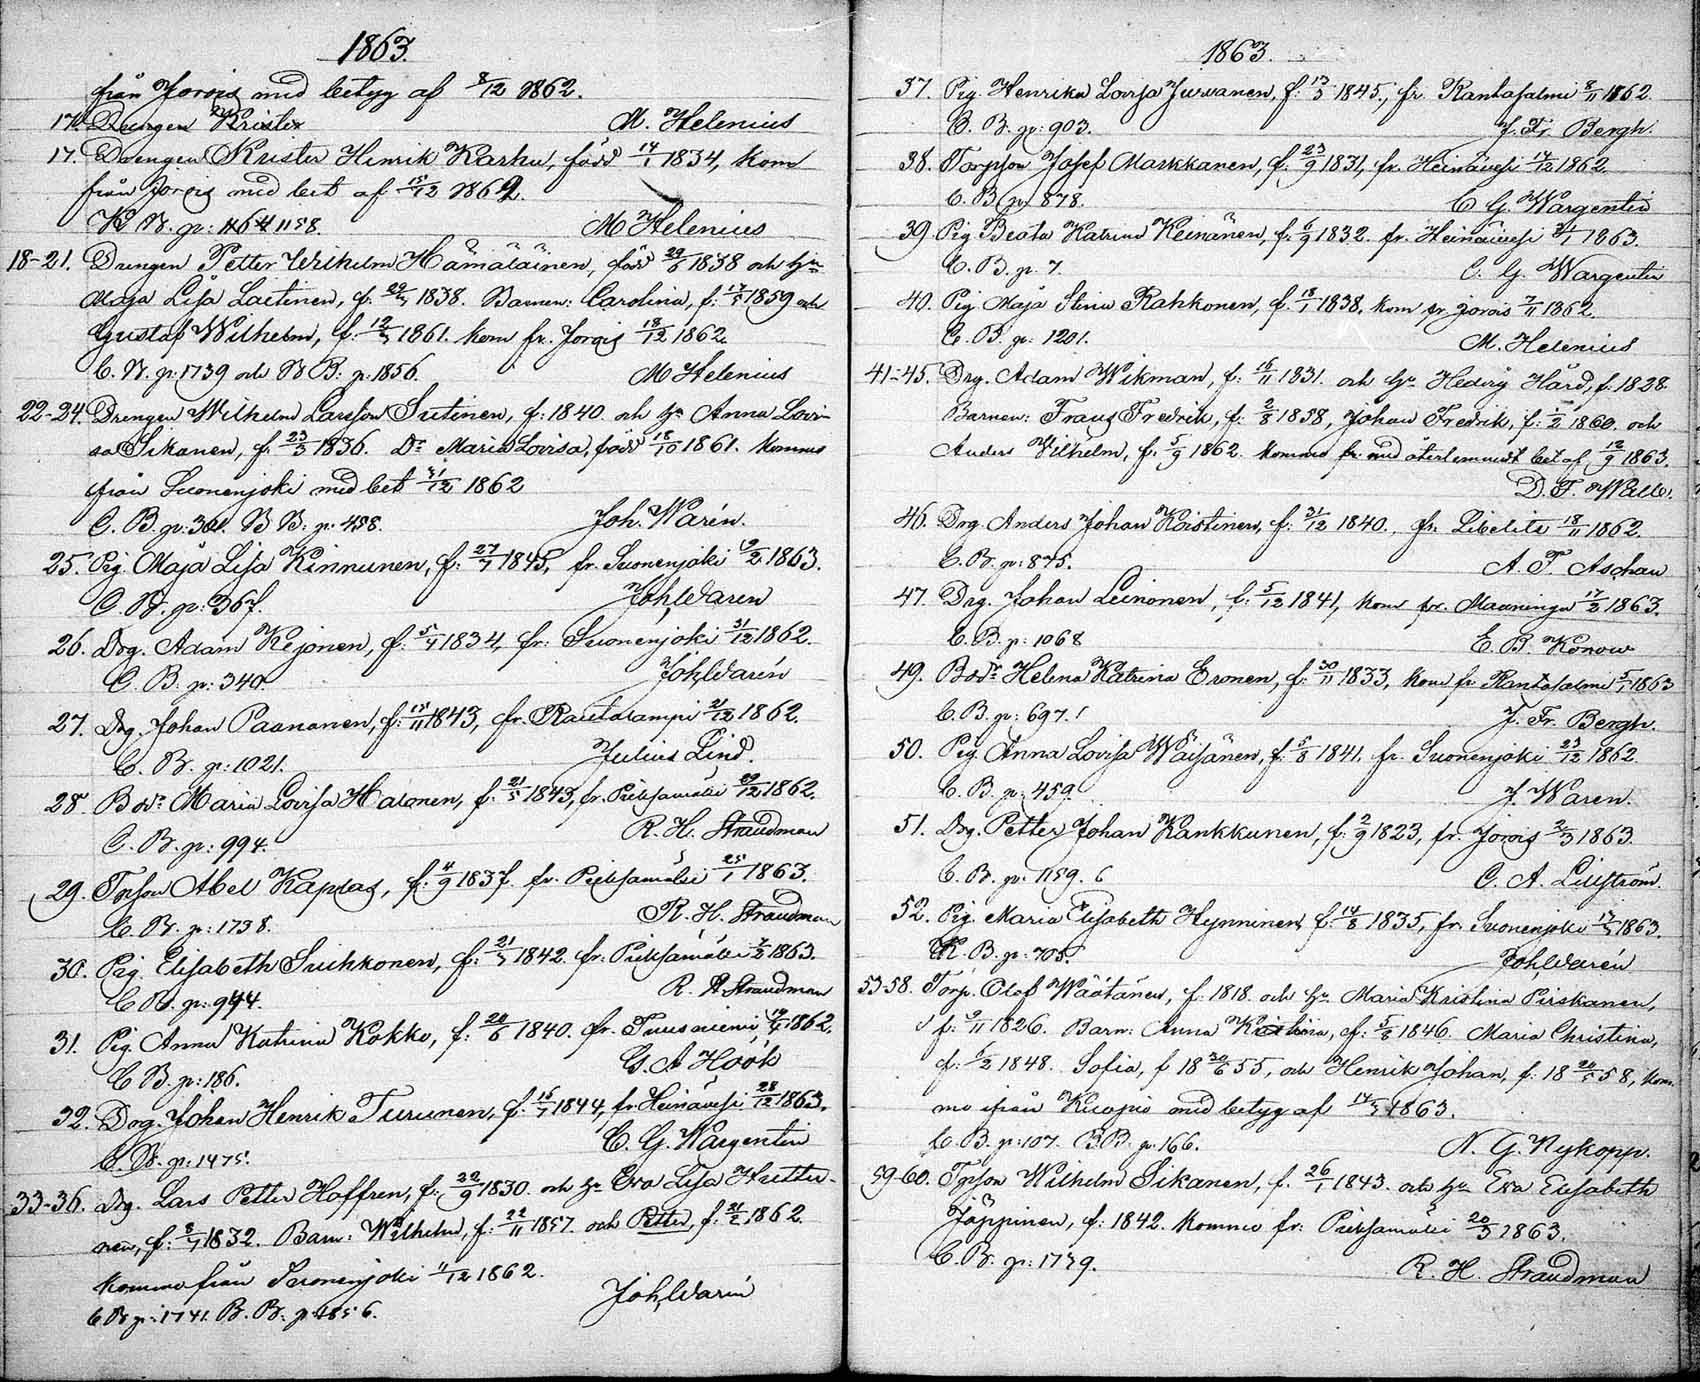 1863.
från Jorois med betyg af 8/12 1862.
17. Drengen Krister M. Helenius
17. Drengen Krister Hinrik Karhu, född 14/1 1834, kom
från Jorois med bet af 15/12 1862.
K B. p: 1158. M Helenius
18-21. Drengen Petter Wilhelm Hämäläinen, född 29/6 1838 och hu
Maja Lisa Laitinen, f. 1838. Barnen: Carolina, f: 17/5 1859 och
Gustaf Wilhelm, f: 1861. kom fr. Jorois 18/12 1862.
C. B. p: 1739 och B B: p. 1856. M Helenius
22-24. Drengen Wilhelm Larsson Sutinen, f: 1840 och hu Anna Lovi-
sa Sikanen, f. 23/3 1836. Dr Maria Lovisa, född 18/10 1861. komna
från Suonenjoki med bet 31/12 1862
C. B. p: 361. B B: p: 458. Joh. Warén.
25. Pig. Maja Lisa Kinnunen, f: 27/7 1845, fr. Suonenjoki 19/2 1863.
C. B. p: 367. Joh, Warén
26. Drg. Adam Kejonen, f: 5/4 1834, fr: Suonenjoki 31/12 1862.
C. B. p: 340. Joh, Warén
27. Drg. Johan Paananen, f: 15/11 1843, fr. Rautalampi 21/12 1862.
C. B. p: 1021. Julius Lind.
28. Bdr Maria Lovisa Halonen, f. 21/5 1843, fr. Pieksamäki 29/12 1862.
C. B. p: 994. R. H. Strandman
29. Tpson Abel Kaplas, f: 4/9 1837. fr. Pieksamäki 25/1 1863.
C. B. p: 1738. R. H. Strandman
30. Pig. Elisabeth Suihkonen, f: 1842. fr. Pieksamäki 7/2 1863.
C B. p: 994. R. H Strandman
31. Pig. Anna Katrina Kokko, f: 20/6 1840. fr. Tuusniemi 1862.
C B. p: 186. G. A Höök
32. Drg. Johan Henrik Turunen, f. 16/7 1844, fr. Heinävesi 28/12 1863.
C. B. p: 1475. C. G. Wargentin
33-36. Drg. Lars Petter Hoffren, f: 22/9 1830 och hu Eva Lisa Hutti-
nen, f: 8/7 1832. Barn: Wilhelm, f: 22/11 1857. och Petter, f. 21/2 1862.
komna från Suonenjoki 11/12 1862.
C B p: 1741. B. B: p 1856. Joh, Warén
1863.
37. Pig. Henrika Lovisa Juvanen, f: 13/3 1845, fr. Rantasalmi 8/11 1862.
C. B. p: 903. J. Fr. Bergh.
38. Torpson Josef Markkanen, f: 23/9 1831, fr. Heinävesi 14/12 1862.
C. B p: 878. C G. Wargentin
39 Pig Beata Katrina Keinänen, f: 6/9 1832. fr. Heinävesi 1863.
C. B. p. 7. C. G. Wargentin
40. Pig Maja Stina Rahkonen, f. 18/1 1838, kom fr Jorois 7/11 1862.
C. B. p: 1201. M. Helenius
41-45. Drg. Adam Wikman, f: 16/11 1831. och hu Hedvig Hård, f. 1828.
Barnen: Frans Fredrik, f: 2/8 1858, Johan Fredrik, f: 1/2 1860. och
Anders Wilhelm, f. 5/9 1862. komna fr med återlemnadt bet af 12/9 1863.
D. F. Walle.
46. Drg. Anders Johan Koistinen, f: 21/12 1840., fr. Libelits 18/11 1862.
C. B. p: 875. A. F. Aschan
47. Drg. Johan Leinonen, f: 5/12 1841, kom fr. Maaninga 17/2 1863.
C. B. p: 1068 E. B. Konow
49. Bodr Helena Katrina Eronen, f: 30/11 1833, kom fr Rantasalmi 5/1 1863
C. B. p: 697. J. Fr. Bergh.
50. Pig. Anna Lovisa Wäisänen, f: 5/8 1841. fr. Suonenjoki 23/12 1862.
C. B. p: 459. J. Waren.
51. Drg. Petter Johan Kankkunen, f: 2/9 1823, fr. Jorois 1863.
C. B. p: 1159. C. A. Lillström.
52. Pig. Maria Elisabeth Hynninen, f: 14/8 1835, fr. Suonenjoki 1863.
K. B. p: 705. Joh, Warén
53-58. Torp. Olof Wäätänen, f. 1818. och hu Maria Kristina Pirskanen,
f: 9/11 1826. Barn: Anna Kristina, f: 5/8 1846. Maria Christina,
f: 1/2 1848. Sofia, f 18 30/6 55, och Henrik Johan, f: 18 20/5 58, kom-
mo ifrån Kuopio med betyg af 1863.
C. B. p: 107. BB. p. 166. N. G. Nykopp.
59-60. Tpson Wilhelm Sikanen, f. 26/1 1843. och hu Eva Elisabeth
Jäppinen, f: 1842. komna fr: Pieksamäki 20/3 1863.
C. B. p: 1739. R. H. Strandman